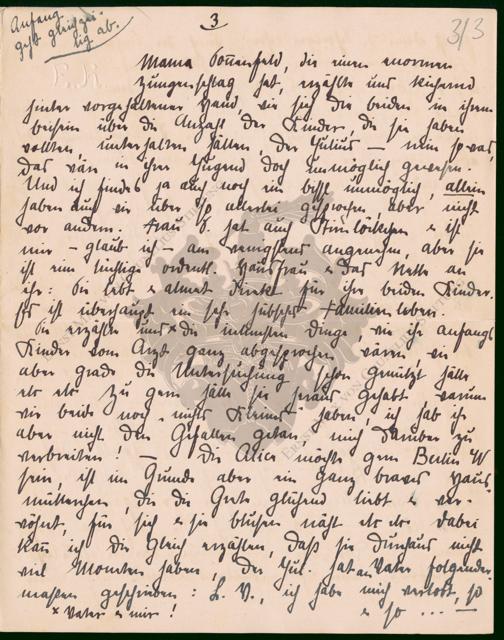 Anfang
geht gleichzei-
tig ab.
3
3/3
Mama Sonnenfeld, die einen enormen
Zungenschlag hat, erzählte uns kichernd
hinter vorgehaltener Hand, wie sich die beiden in ihrem
beisein über die Anzahl der Kinder, die sie haben
wollten, unterhalten hätten, der Julius – nein so was,
das wär in ihrer Jugend doch unmöglich gewesen.
Und ich finde es ja auch noch ein bissl unmöglich, allein
haben auch wir über so allerlei gesprochen, aber nicht
vor andern. Frau S. hat auch & ist
mir – glaub ich – am wenigsten angenehm, aber sie
ist eine tüchtige ordentl. Hausfrau & das Nette an
ihr: Sie lebt & atmet direkt für ihre beiden Kinder.
Es ist überhaupt ein sehr hübsches Familienleben.
Sie erzählte uns x die intimsten Dinge, wie ihr anfangs
Kinder vom Arzt ganz abgesprochen wären, wie
aber grade die Untersuchung schon genützt hätte
etc etc Zu gern hätte sie heraus gehabt warum
wir beide noch nichts Kleines haben, ich hab ihr
aber nicht den Gefallen getan mich darüber zu
verbreiten! – Die Alice möchte gern Berlin W
sein, ist im Grunde aber ein ganz braves Haus-
mütterchen, die die Grete glühend liebt & ver-
wöhnt, für sich & sie blusen näht etc etc dabei
kann ich dir gleich erzählen, daß sie durchaus nicht
viel Moneten haben. Der Jul. hat an Vater folgender-
maßen geschrieben: L. V., ich habe mich verlobt, so
& so ... —
x Vater & mir!